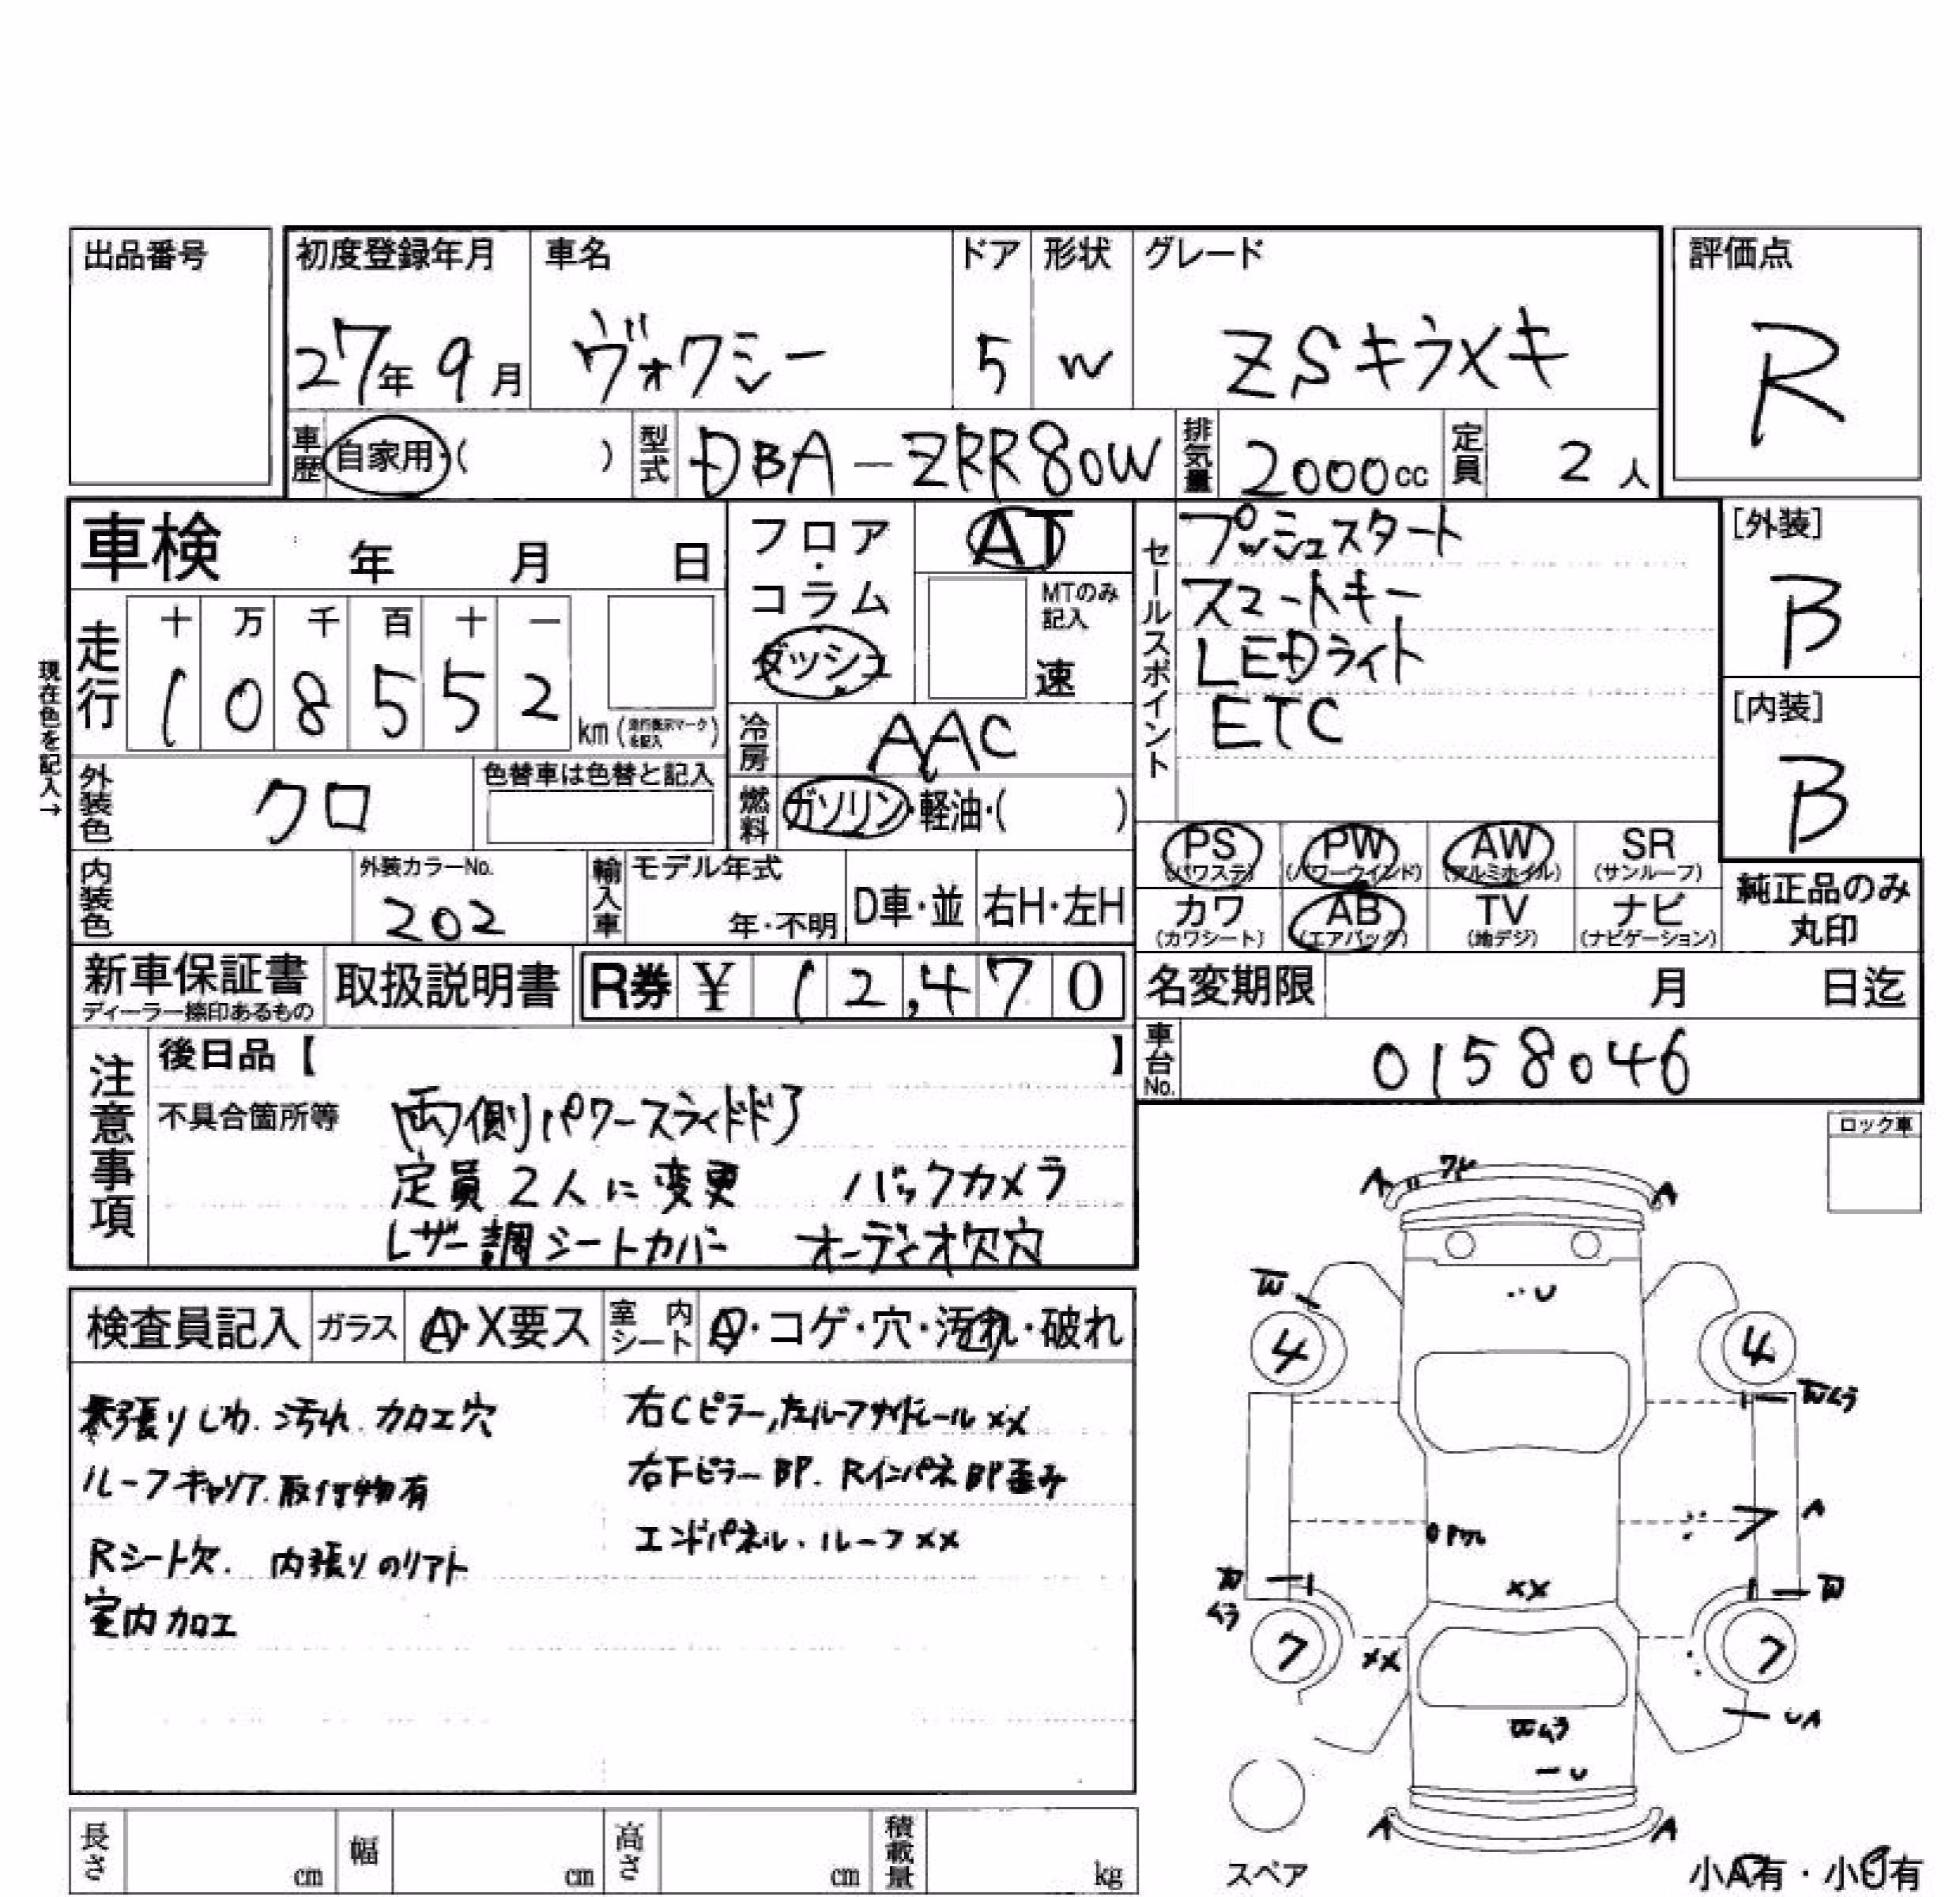 出品番号
初度登録年月 車名 ドア 形状 グレード 評価点
27年 9月 ヴォクシー 5 W ZSキラメキ R
車歴 自家用・( ) 型式 DBA-ZRR80W 排気量 2000cc 定員 2人
車検 年 月 日
フロア・コラム ダッシュ
AT
MTのみ記入
速
セールスポイント
プッシュスタート
スマートキー
LEDライト
ETC
[外装]
B
[内装]
B
現在色を記入→
走行 十 万 千 百 十 一
1 0 8 5 5 2 km (走行表示マークを記入)
冷房 AAC
外装色 クロ 色替車は色替と記入
燃料 ガソリン・軽油・( )
PS (パワステ) PW (パワーウインド) AW (アルミホイル) SR (サンルーフ)
カワ (カワシート) AB (エアバック) TV (地デジ) ナビ (ナビゲーション)
純正品のみ
丸印
内装色 外装カラーNo. 202 輸入車 モデル年式 年・不明 D車・並 右H・左H
新車保証書 ディーラー捺印あるもの 取扱説明書 R券 ¥ 12,470
名変期限 月 日迄
車台No. 0158046
注意事項
後日品【 】
不具合箇所等 両側パワースライドドア
定員2人に変更 バックカメラ
レザー調シートカバー オーディオ欠穴
ロック車
検査員記入 ガラス A・X要ス 室内シート A・コゲ・穴・汚れ・破れ
張りしわ.汚れ.カロエ穴
ルーフキャリア.取付物有
Rシート欠. 内張りのリアト
室内加工
右Cピラー,左ルーフサイドレールXX
右下ピラーBP. RインパネBP歪み
エンドパネル.ルーフXX
A A
W
・・U
4 4
Wムラ
A
フ
XX
W
ムラ
7 7
XX
UA
Wムラ
U
A A
スペア
小A有・小U有
長さ cm 幅 cm 高さ cm 積載量 kg